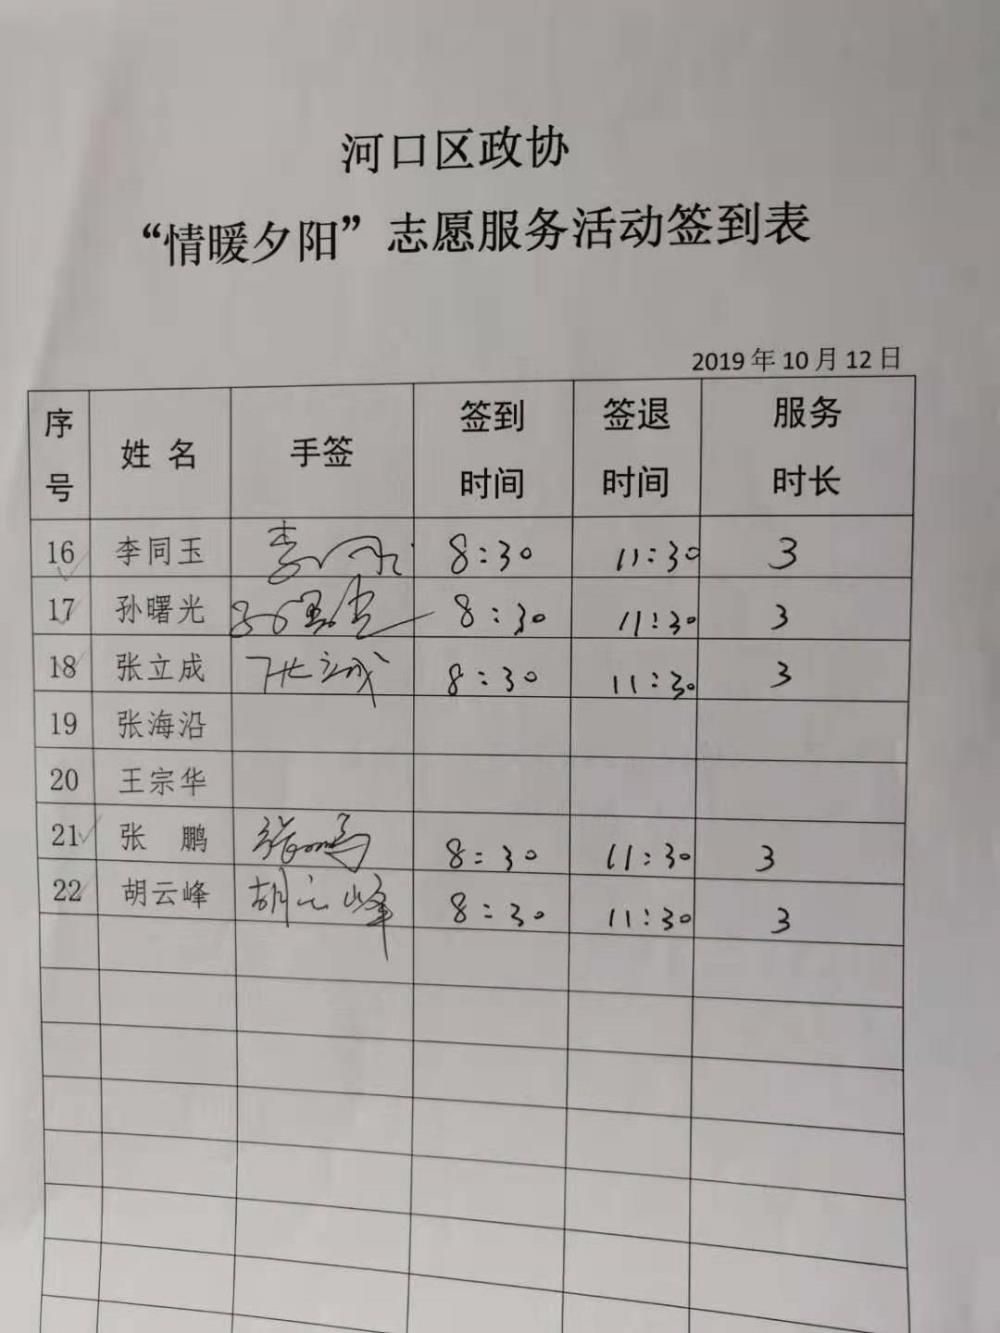 河口区政协
“情暖夕阳”志愿服务活动签到表
2019年10月12日
序号 姓名 手签 签到时间 签退时间 服务时长
16 李同玉 8:30 11:30 3
17 孙曙光 孙曙光 8:30 11:30 3
18 张立成 张立成 8:30 11:30 3
19 张海沿
20 王宗华
21 张 鹏 张鹏 8:30 11:30 3
22 胡云峰 胡云峰 8:30 11:30 3